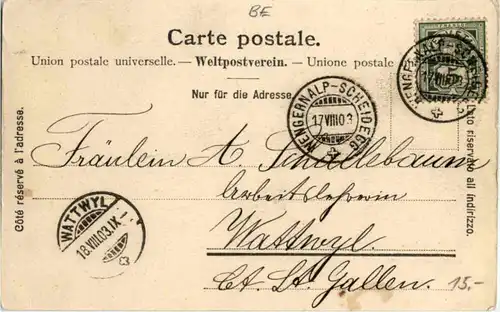 BE
Carte postale.
Union postale universelle. — Weltpostverein. — Unione postale
Nur für die Adresse.
WENGERNALP-SCHEIDEGG
17 VIII 03
WENGERNALP-SCHEIDEGG
17 VIII 03
5
Côté réservé à l'adresse.
Lato riservato all indirizzo.
Fräulein A. Schällebaum
Arbeitslehrerin
Wattwyl.
Ct. St. Gallen.
WATTWYL
18.VIII.03.IX.–
15.-